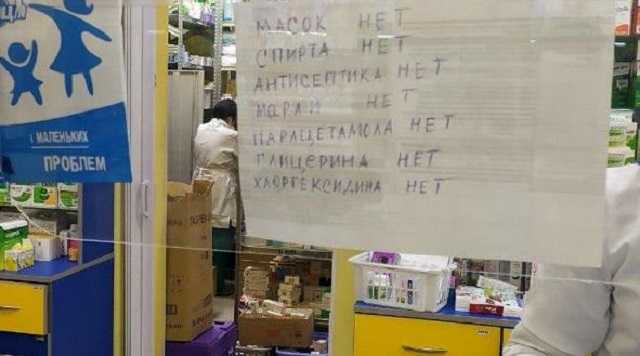 МАСОК НЕТ
СПИРТА НЕТ
АНТИСЕПТИКА НЕТ
МАРЛИ НЕТ
ПАРАЦЕТАМОЛА НЕТ
ГЛИЦЕРИНА НЕТ
ХЛОРГЕКСИДИНА НЕТ
МАЛЕНЬКИХ
ПРОБЛЕМ